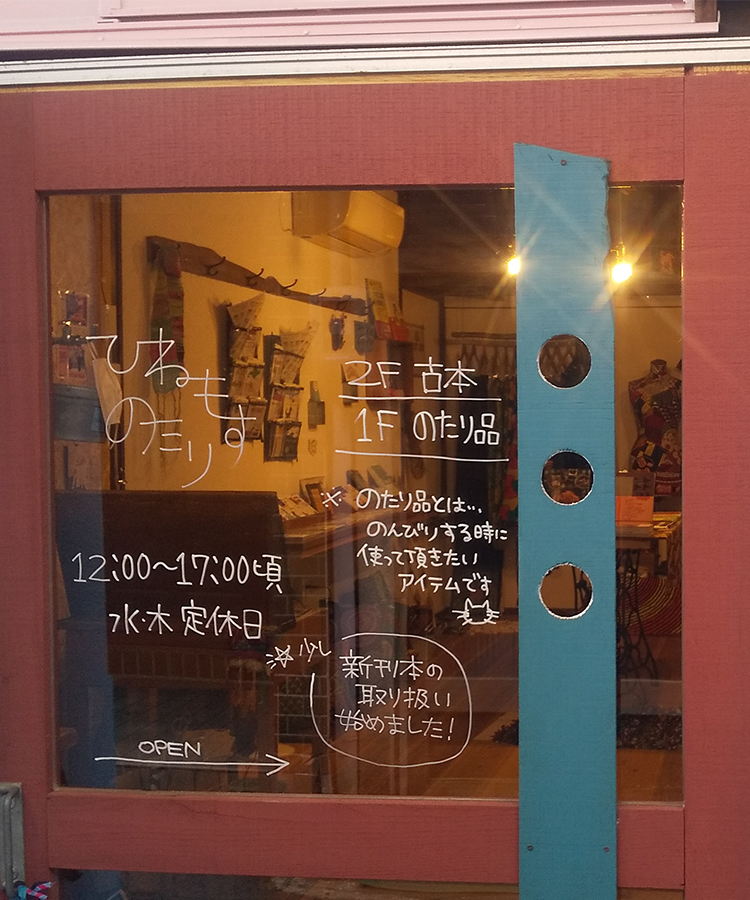 ひねもす
のたり
12:00〜17:00頃
水・木 定休日
OPEN
2F 古本
1F のたり品
※ のたり品とは...
のんびりする時に
使って頂きたい
アイテムです
少し
新刊本の
取り扱い
始めました!